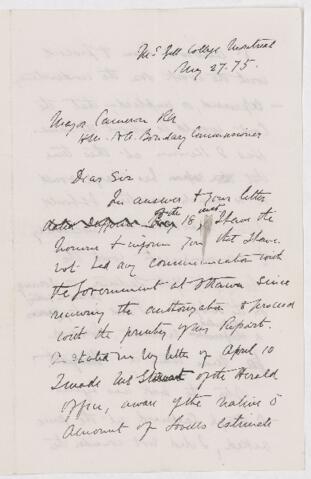 McGill College Montreal
May 27. 75.
Major Cameron RA
H.M. N.A. Boundary Commissioner
Dear Sir
In answer to your letter
of the 18 inst I have the
honour to inform you that I have
not had any communication with
the Government at Ottawa since
receiving the authorization to proceed
with the printing of my Report.
As stated in my letter of April 10
I made Mr Stewart of the Herald
office, aware of the nature &
amount of Lovells Estimate